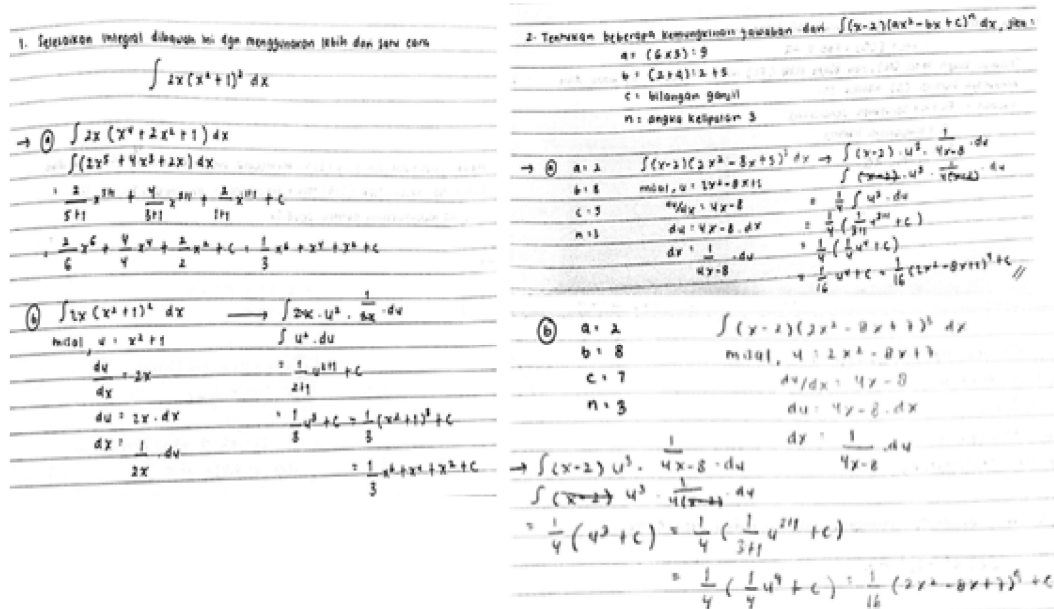 1. Selesaikan integral dibawah ini dgn menggunakan lebih dari satu cara
∫ 2x (x² + 1)² dx
→ ⓐ ∫ 2x (x⁴ + 2x² + 1) dx
∫ (2x⁵ + 4x³ + 2x) dx
= 2/(5+1) x⁵⁺¹ + 4/(3+1) x³⁺¹ + 2/(1+1) x¹⁺¹ + c
= 2/6 x⁶ + 4/4 x⁴ + 2/2 x² + c = 1/3 x⁶ + x⁴ + x² + c
ⓑ ∫ 2x (x² + 1)² dx → ∫ 2x · u² · 1/2x · du
misal, u = x² + 1 ∫ u² · du
du/dx = 2x = 1/(2+1) u²⁺¹ + c
du = 2x · dx = 1/3 u³ + c = 1/3 (x² + 1)³ + c
dx = 1/2x · du
= 1/3 x⁶ + x⁴ + x² + c
2. Tentukan beberapa kemungkinan jawaban dari ∫ (x-2)(ax² - bx + c)ⁿ dx, jika :
a =
b =
c = bilangan ganjil
n = angka kelipatan 3
→ ⓐ a = 2 ∫ (x-2)(2x² - 8x + 5)³ dx → ∫ (x-2) · u³ · 1/(4x-8) · du
b = 8 misal, u = 2x² - 8x + 5 ∫ (x-2) · u³ · 1/4(x-2) · du
c = 5 du/dx = 4x - 8 = 1/4 ∫ u³ · du
n = 3 du = 4x - 8 . dx = 1/4 ( 1/(3+1) u³⁺¹ + c)
dx = 1/(4x-8) · du = 1/4 (1/4 u⁴ + c)
= 1/16 u⁴ + c = 1/16 (2x² - 8x + 5)⁴ + c //
ⓑ a = 2 ∫ (x-2)(2x² - 8x + 7)³ dx
b = 8 misal, u = 2x² - 8x + 7
c = 7 du/dx = 4x - 8
n = 3 du = 4x - 8 . dx
dx = 1/(4x-8) · du
→ ∫ (x-2) u³ · 1/(4x-8) · du
∫ (x-2) u³ · 1/4(x-2) · du
= 1/4 (u³ + c) = 1/4 ( 1/(3+1) u³⁺¹ + c)
= 1/4 (1/4 u⁴ + c) = 1/16 (2x² - 8x + 7)⁴ + c